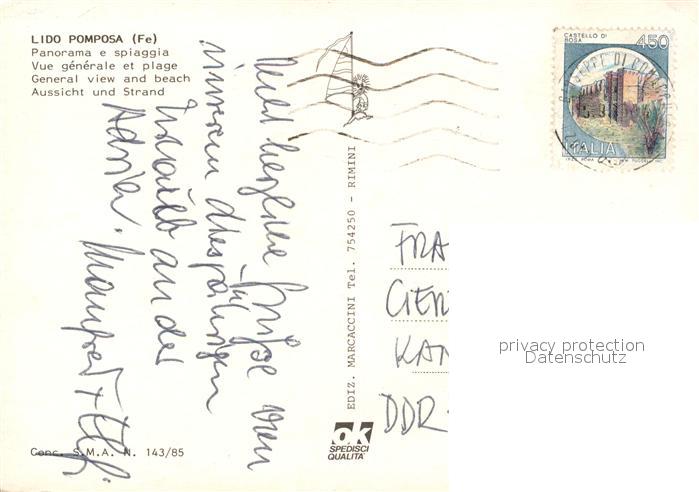 LIDO POMPOSA (Fe)
Panorama e spiaggia
Vue générale et plage
General view and beach
Aussicht und Strand
CASTELLO DI BOSA
450
ITALIA
Recht herzliche Grüße von
unserem diesjährigen
Urlaub an der
Adria.
Manfred +
EDIZ. MARCACCINI Tel. 754250 - RIMINI
FRA
GER
KAN
DDR-
privacy protection
Datenschutz
ok
SPEDISCI
QUALITA'
Conc. S.M.A. N. 143/85